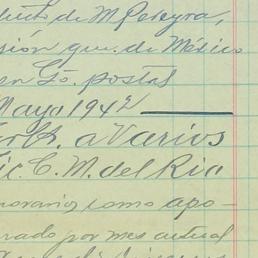 de M Pereyra,
sión que. de México
en Go. postal
Mayo 1942
a Varios
Lic. C. M. del Rio
honorarios como apo-
rado por mes actual